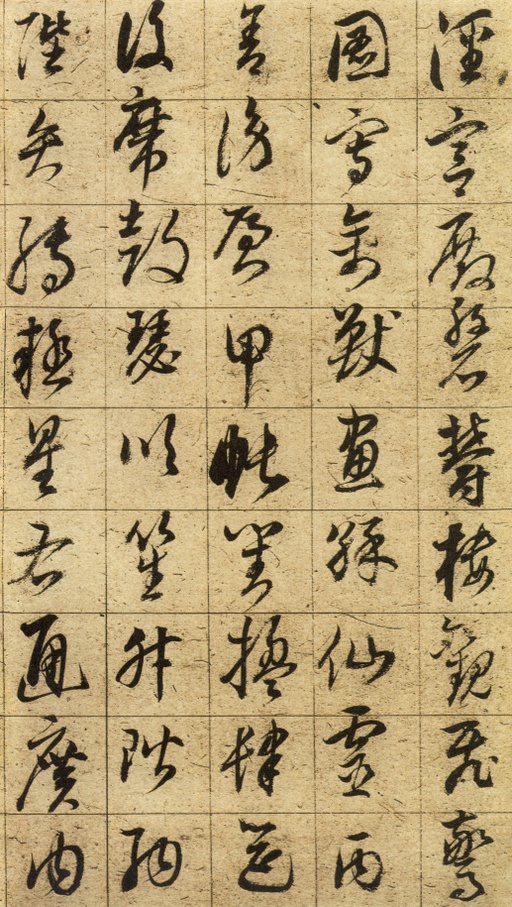 涇宮殿磐鬱樓觀飛驚
圖寫禽獸畫綵仙靈丙
舍傍啟甲帳對楹肆筵
設席鼓瑟吹笙升階納
陛弁轉疑星右通廣內